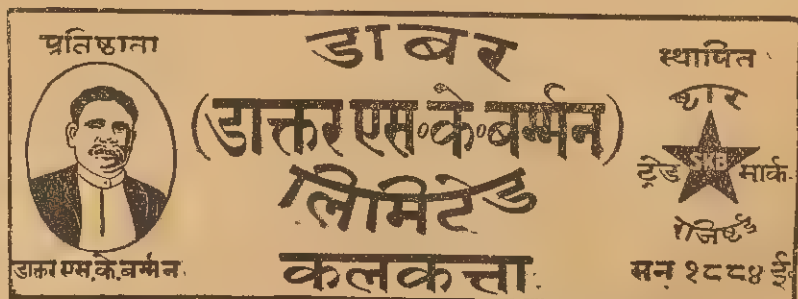 प्रतिष्ठाता
डाक्तर एस.के.बर्म्मन
डाबर
(डाक्तर एस॰के॰बर्म्मन)
लिमिटेड
कलकत्ता
स्थापित
ष्टार
SKB
ट्रेड मार्क
रेजिष्टर्ड
सन १८८४ ई॰